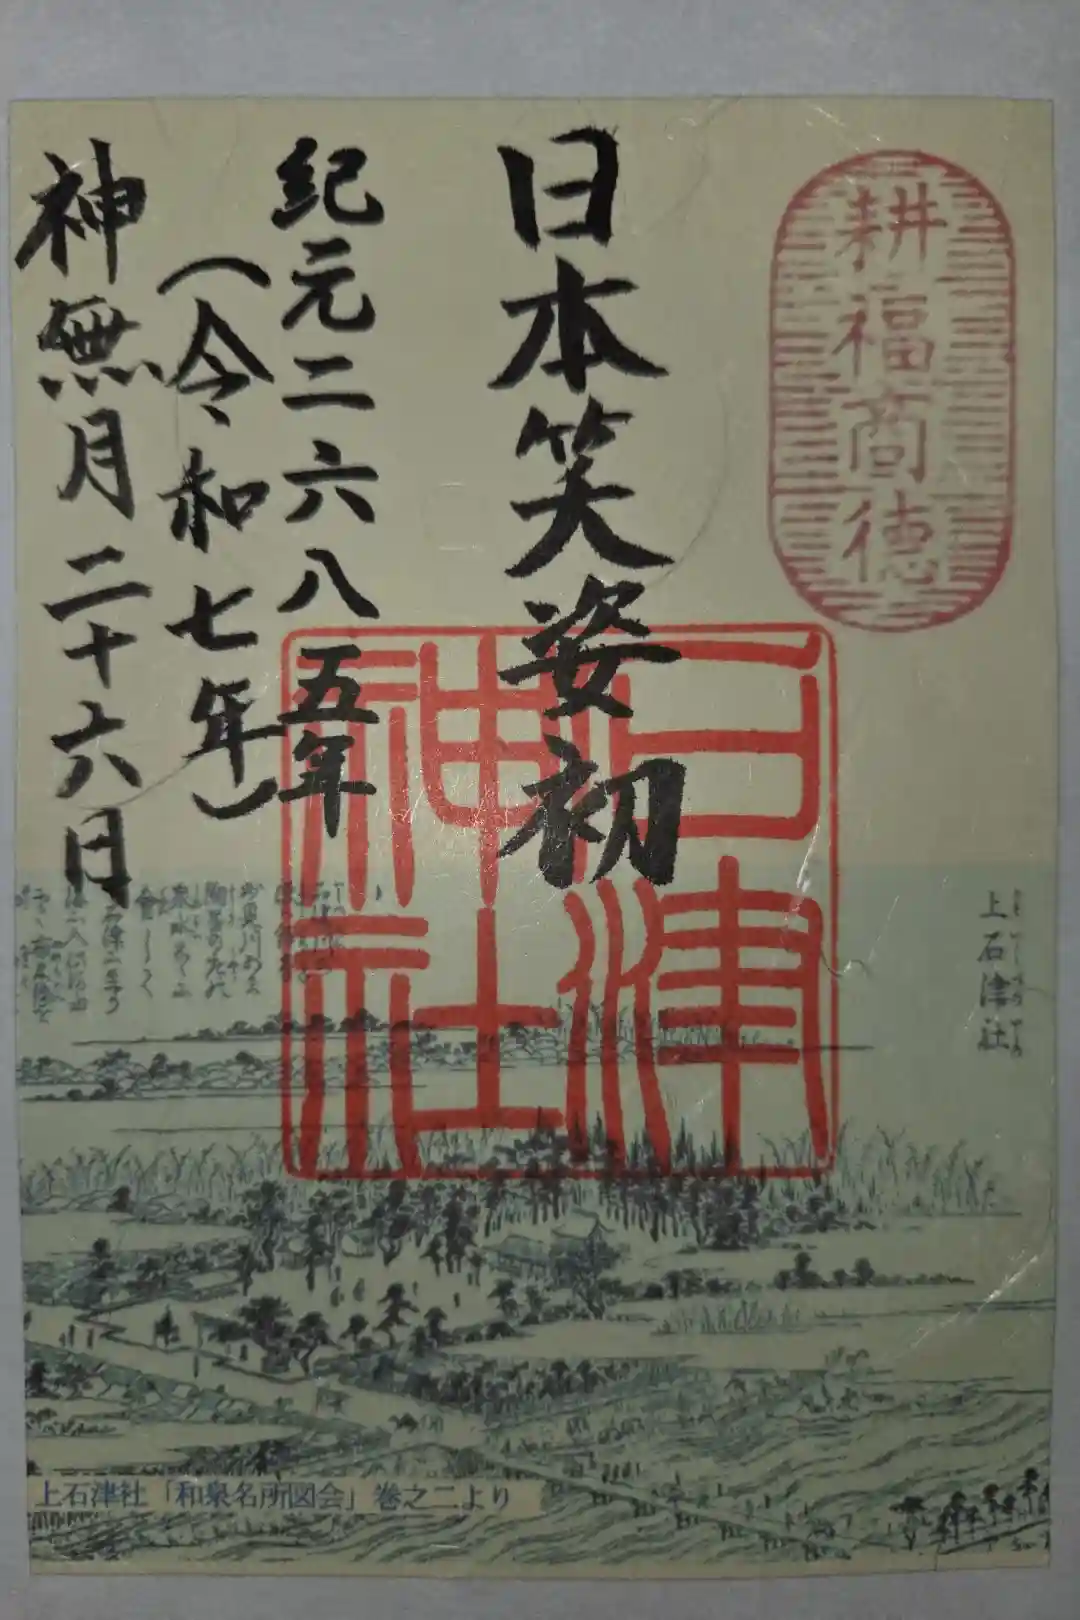 耕福商徳
日本笑姿初
紀元二六八五年
（令和七年）
神無月二十六日
石津神社
上石津社
上石津社「和泉名所図会」巻之二より